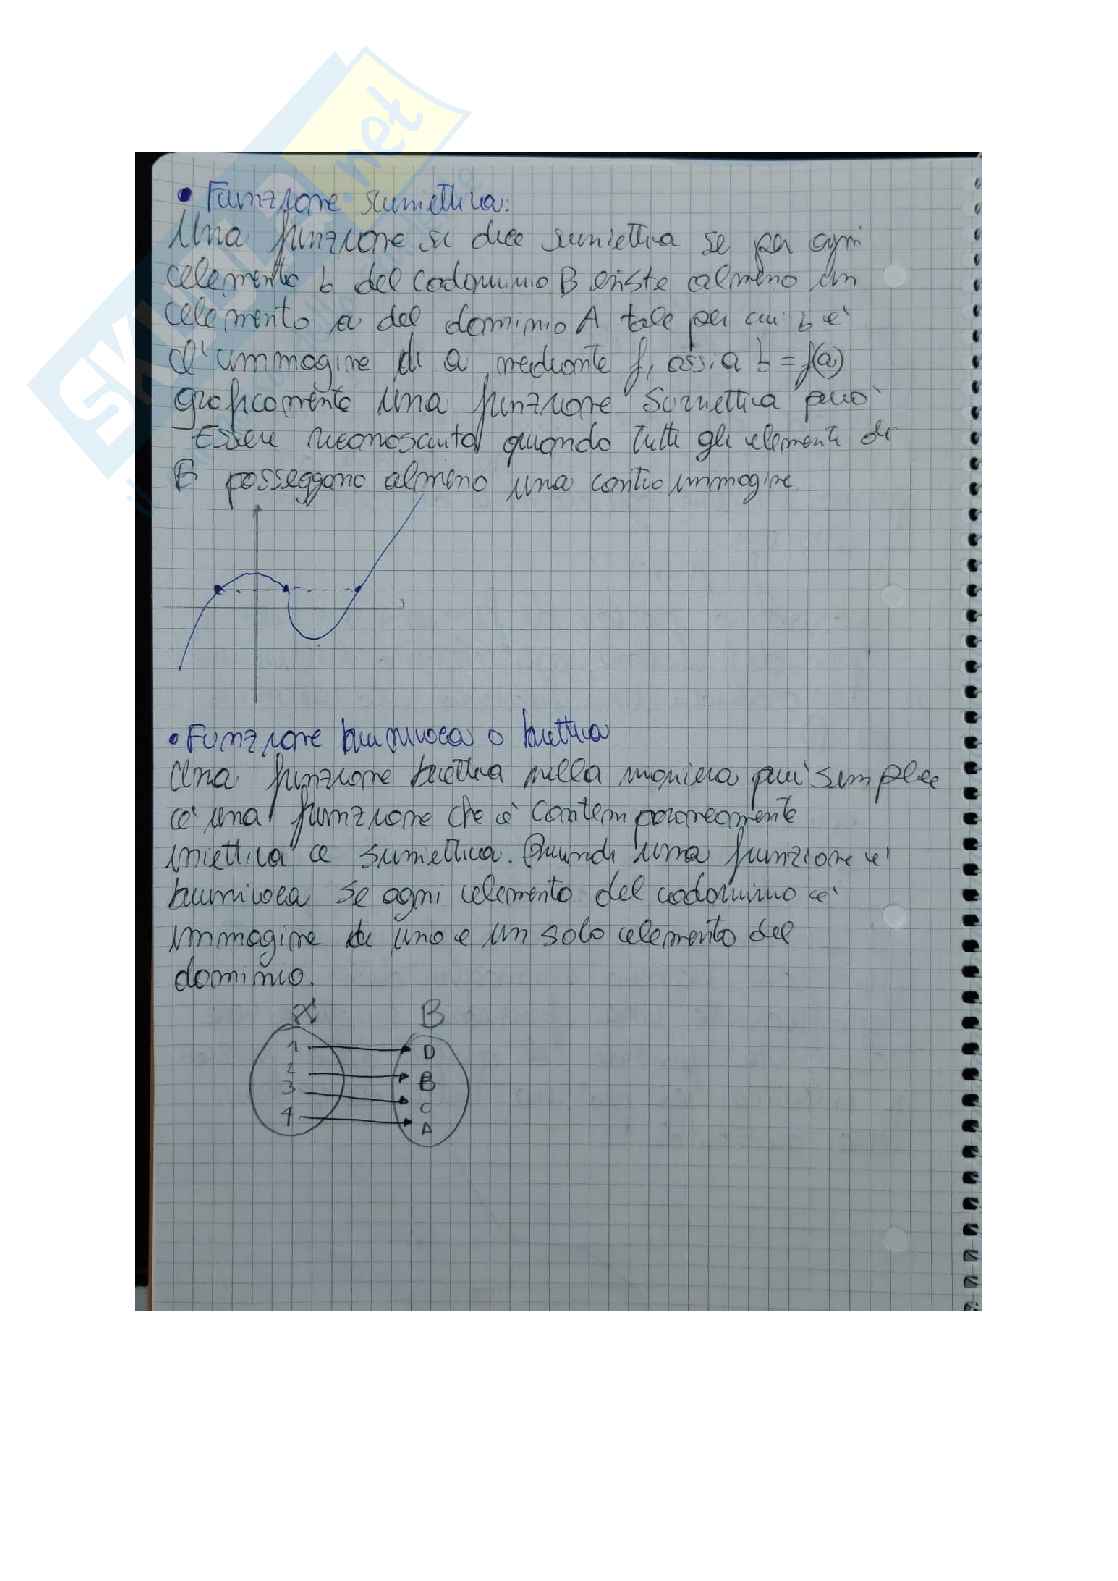 SKUOLA.net
• Funzione suriettiva:
Una funzione si dice suriettiva se per ogni
elemento b del codominio B esiste almeno un
elemento a del dominio A tale per cui b è
l'immagine di a mediante f, ossia b = f(a)
graficamente una funzione suriettiva può
Essere riconosciuta quando tutti gli elementi di
B posseggano almeno una controimmagine.
• Funzione biunivoca o biettiva
Una funzione biettiva nella maniera più semplice
è una funzione che è contemporaneamente
iniettiva e suriettiva. Quindi una funzione è
biunivoca se ogni elemento del codominio è
immagine di uno e un solo elemento del
dominio.
B
1 D
2 B
3 C
4 A